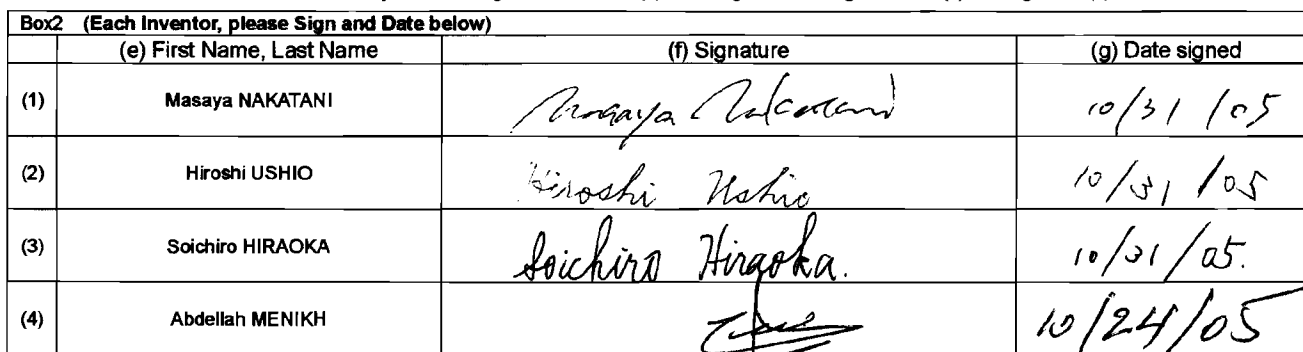 Box2 (Each Inventor, please Sign and Date below)
(e) First Name, Last Name (f) Signature (g) Date signed
(1) Masaya NAKATANI Masaya Nakatani 10/31/05
(2) Hiroshi USHIO Hiroshi Ushio 10/31/05
(3) Soichiro HIRAOKA Soichiro Hiraoka. 10/31/05.
(4) Abdellah MENIKH 10/24/05